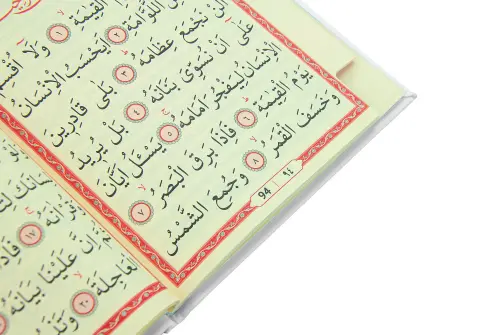 الْقِيٰمَةِۙ ﴿١﴾ وَلَٓا اُقْسِمُ
اللَّوَّامَةِ ﴿٢﴾ اَيَحْسَبُ الْاِنْسَانُ
نَجْمَعَ عِظَامَهُۜ ﴿٣﴾ بَلٰى قَادِر۪ينَ
عَلٰٓى اَنْ نُسَوِّيَ بَنَانَهُ ﴿٤﴾ بَلْ يُر۪يدُ
الْاِنْسَانُ لِيَفْجُرَ اَمَامَهُۚ ﴿٥﴾ يَسْـَٔلُ اَيَّانَ
يَوْمُ الْقِيٰمَةِۜ ﴿٦﴾ فَاِذَا بَرِقَ الْبَصَرُۙ ﴿٧﴾
وَخَسَفَ الْقَمَرُۙ ﴿٨﴾ وَجُمِعَ الشَّمْسُ
94 ٩٤
﴿١٧﴾
ثُمَّ اِنَّ عَلَيْنَا بَيَانَهُ
الْعَاجِلَةَۙ ﴿٢٠﴾